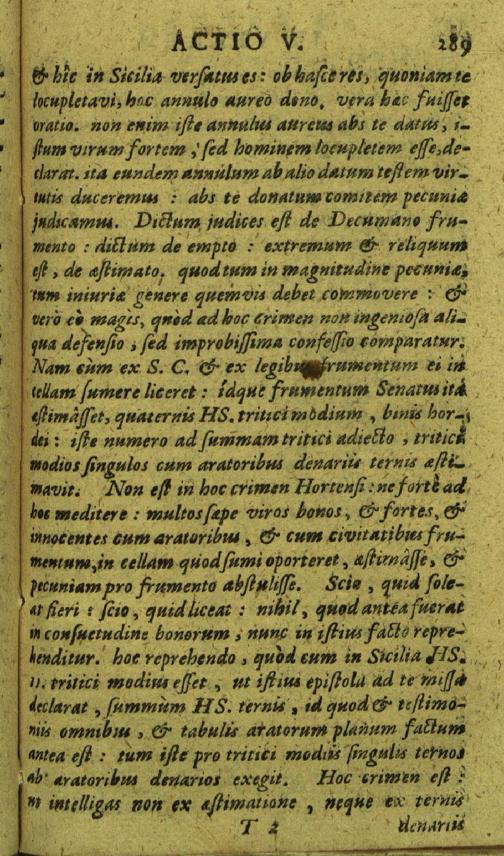 ACTIO V. 289
& hîc in Sicilia versatus es: ob hasce res, quoniam te
locupletavi, hoc annulo aureo dono, vera hæc fuisset
oratio. non enim iste annulus aureus abs te datus, i-
stum virum fortem, sed hominem locupletem esse, de-
clarat. ita eundem annulum ab alio datum testem vir-
tutis duceremus: abs te donatum comitem pecuniæ
judicamus. Dictum, judices est de Decumano fru-
mento: dictum de empto: extremum & reliquum
est, de æstimato, quod tum in magnitudine pecuniæ,
tum iniuriæ genere quemvis debet commovere: &
verò eò magis, quòd ad hoc crimen non ingeniosa ali-
qua defensio, sed improbissima confessio comparatur.
Nam cùm ex S. C. & ex legibus frumentum ei in
cellam sumere liceret: idque frumentum Senatus ita
æstimâsset, quaternis HS. tritici modium, binis hor-
dei: iste numero ad summam tritici adiecto, tritici
modios singulos cum aratoribus denariis ternis æsti-
mavit. Non est in hoc crimen Hortensi: ne fortè ad
hoc meditere: multos sæpe viros bonos, & fortes, &
innocentes cum aratoribus, & cum civitatibus fru-
mentum, in cellam quod sumi oporteret, æstimâsse, &
pecuniam pro frumento abstulisse. Scio, quid sole-
at fieri: scio, quid liceat: nihil, quod antea fuerat
in consuetudine bonorum, nunc in istius facto repre-
henditur. hoc reprehendo, quòd cum in Sicilia HS.
II. tritici modius esset, ut istius epistola ad te missa
declarat, summum HS. ternis, id quod & testimo-
niis omnibus, & tabulis aratorum planum factum
antea est: tum iste pro tritici modiis singulis ternos
ab aratoribus denarios exegit. Hoc crimen est:
ut intelligas non ex æstimatione, neque ex ternis
T 2 denariis